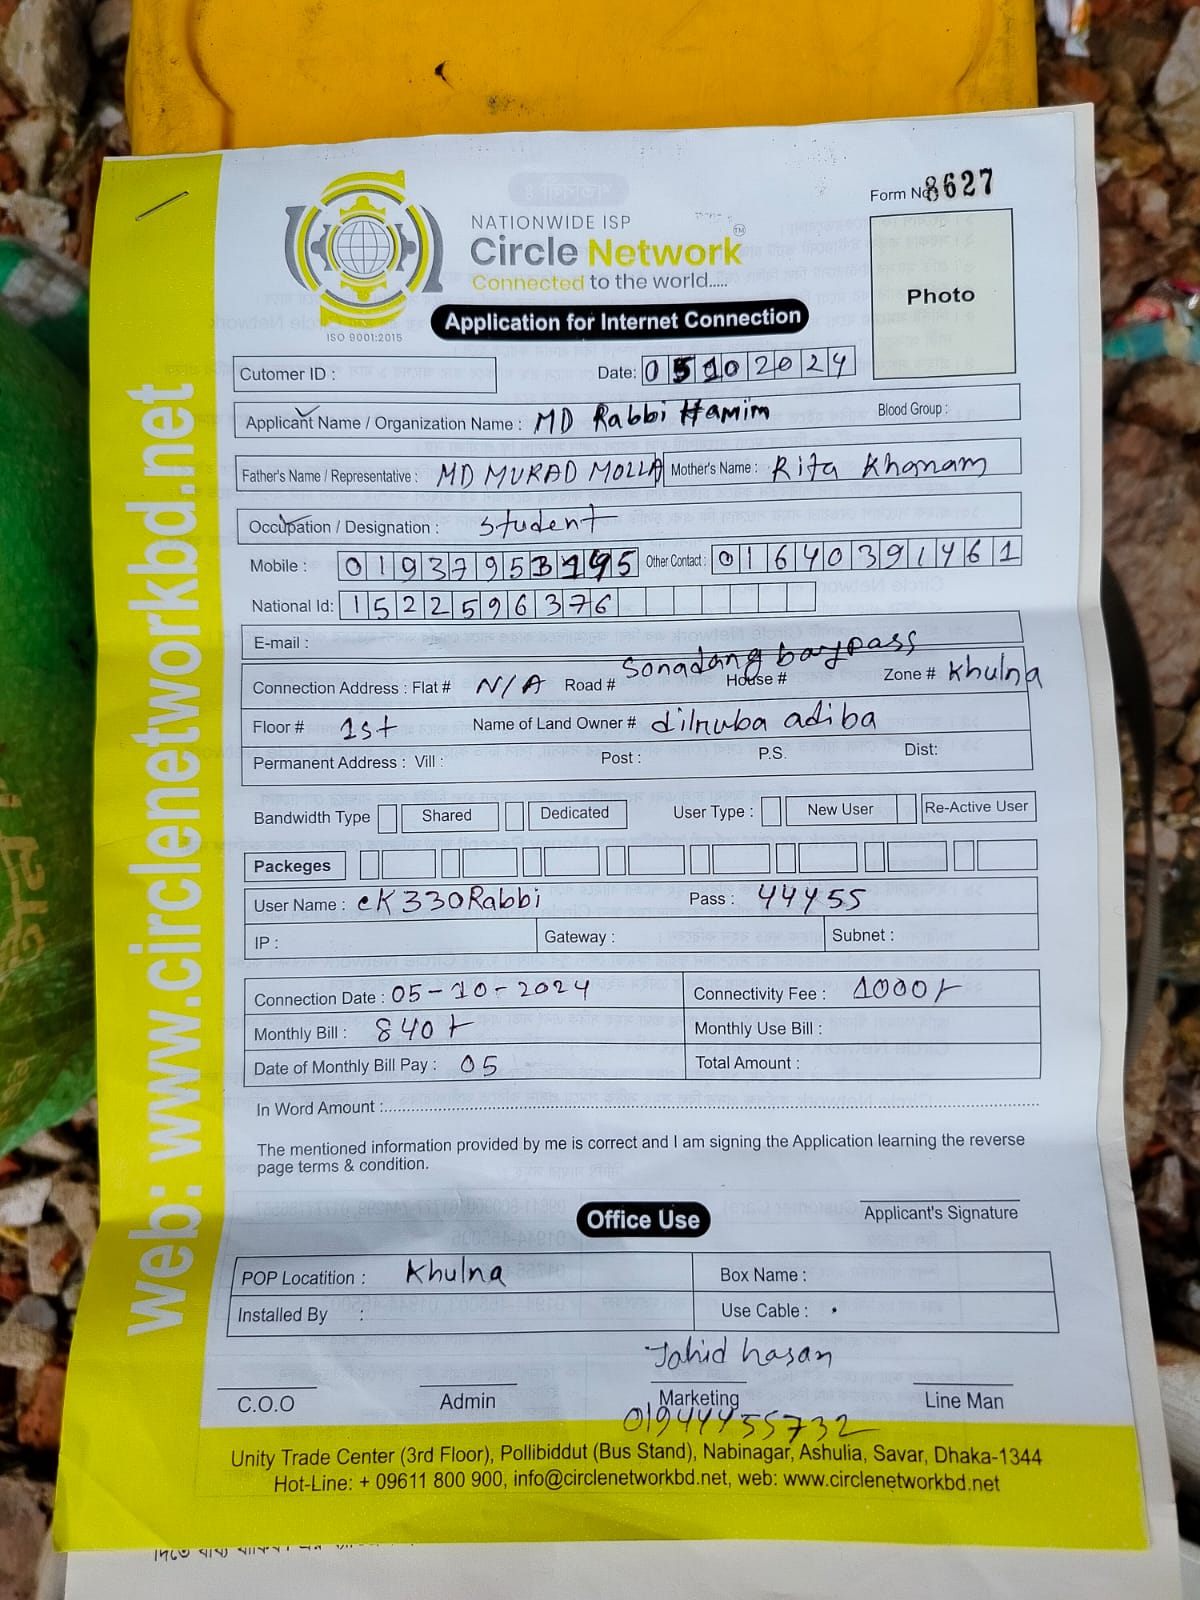 Form No 8627
NATIONWIDE ISP
Circle Network™
Connected to the world.....
ISO 9001:2015
Photo
Application for Internet Connection
Cutomer ID : Date: 05102024
Applicant Name / Organization Name : MD Rabbi Hamim Blood Group :
Father's Name / Representative : MD MURAD MOLLA Mother's Name : Rita Khanam
Occupation / Designation : Student
Mobile : 01937953195 Other Contact : 01640391461
National Id: 1522596376
E-mail :
Connection Address : Flat # N/A Road # Sonadang baypass House # Zone # Khulna
Floor # 1st Name of Land Owner # dilruba adiba
Permanent Address : Vill : Post : P.S. Dist:
Bandwidth Type Shared Dedicated User Type : New User Re-Active User
Packeges
User Name : cK330Rabbi Pass : 44455
IP : Gateway : Subnet :
Connection Date : 05-10-2024 Connectivity Fee : 1000/-
Monthly Bill : 840/- Monthly Use Bill :
Date of Monthly Bill Pay : 05 Total Amount :
In Word Amount :
The mentioned information provided by me is correct and I am signing the Application learning the reverse
page terms & condition.
Applicant's Signature
Office Use
POP Locatition : Khulna Box Name :
Installed By : Use Cable :
Jahid hasan
C.O.O Admin Marketing Line Man
01944455732
Unity Trade Center (3rd Floor), Pollibiddut (Bus Stand), Nabinagar, Ashulia, Savar, Dhaka-1344
Hot-Line: + 09611 800 900, info@circlenetworkbd.net, web: www.circlenetworkbd.net
web: www.circlenetworkbd.net